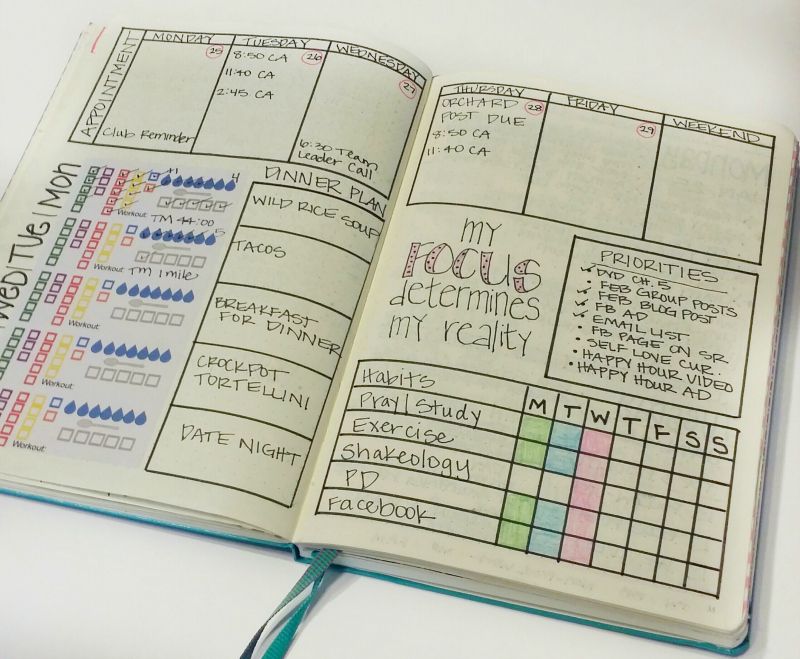 APPOINTMENT
MONDAY
25
Club Reminder
TUESDAY
26
8:50 CA
11:40 CA
2:45 CA
WEDNESDAY
27
6:30 Team
Leader Call
Mon
+1
4
Workout:
TM 44:00
TUE
5
Workout:
TM 1 mile
WED
Workout:
Workout:
Workout:
DINNER PLAN
WILD RICE SOUP
TACOS
BREAKFAST
FOR DINNER
CROCKPOT
TORTELLINI
DATE NIGHT
THURSDAY
28
ORCHARD
POST DUE
8:50 CA
11:40 CA
FRIDAY
29
WEEKEND
my
FOCUS
determines
my reality
PRIORITIES
DVD CH. 5
FEB GROUP POSTS
FEB BLOG POST
FB AD
EMAIL LIST
FB PAGE ON SR.
SELF LOVE CUR.
HAPPY HOUR VIDEO
HAPPY HOUR AD
Habits
M T W T F S S
Pray/Study
Exercise
Shakeology
PD
Facebook